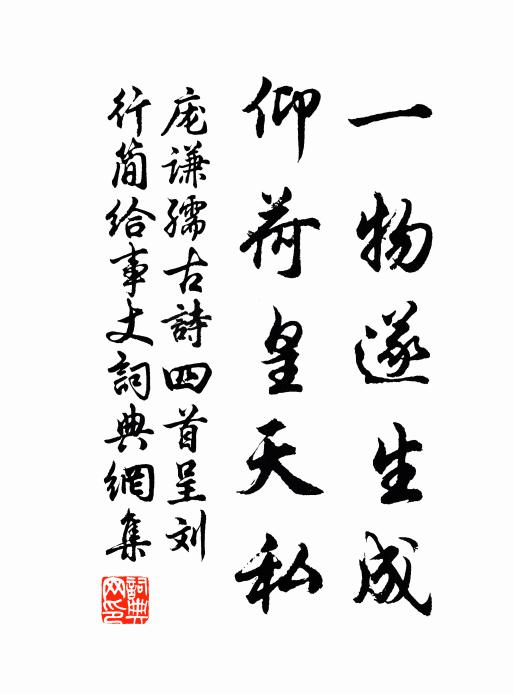 一物遂生成
仰荷皇天私
庞谦孺古詩四首呈刘
行简给事丈詞典網集
詞典
网印